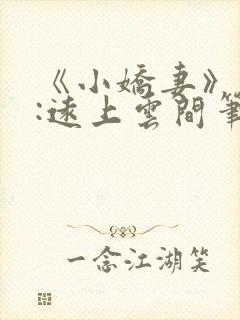 《小嬌妻》
:遠上雲間筆
一念江湖笑